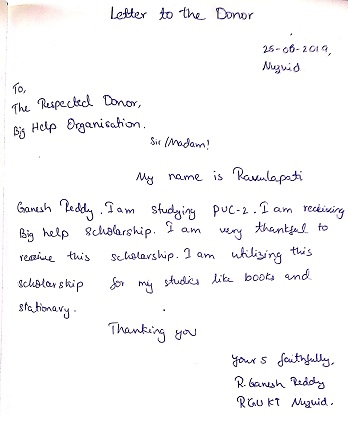 Letter to the Donor
25-06-2019,
Nuzvid
To,
The Respected Donor,
Big Help Organisation.
Sir/Madam!
My name is Ravulapati
Ganesh Reddy. I am studying PUC-2. I am receiving
Big help scholarship. I am very thankful to
receive this scholarship. I am utilizing this
scholarship for my studies like books and
stationary.
Thanking you
Yours faithfully,
R. Ganesh Reddy
RGUKT Nuzvid.